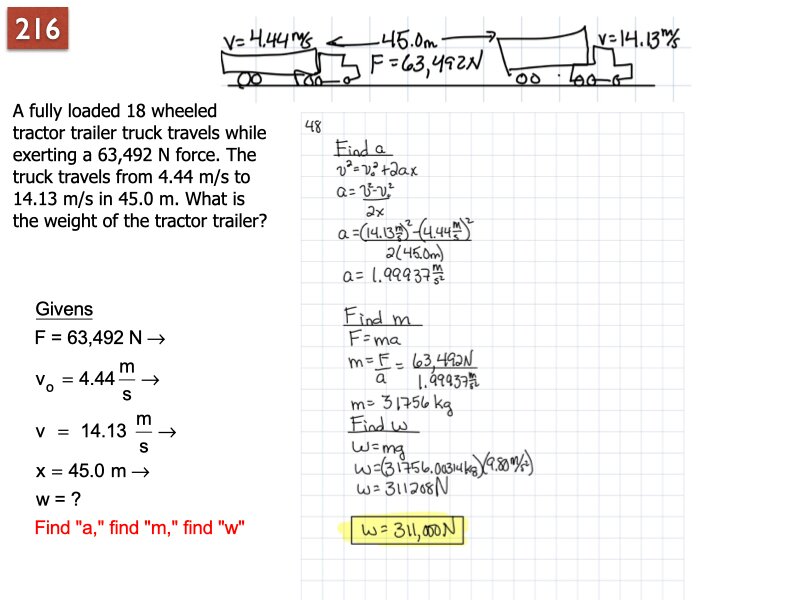 216
v=4.44 m/s ← 45.0m → v=14.13 m/s
F=63,492N
A fully loaded 18 wheeled
tractor trailer truck travels while
exerting a 63,492 N force. The
truck travels from 4.44 m/s to
14.13 m/s in 45.0 m. What is
the weight of the tractor trailer?
Givens
F = 63,492 N →
vₒ = 4.44 m/s →
v = 14.13 m/s →
x = 45.0 m →
w = ?
Find "a," find "m," find "w"
48
Find a
v²=v₀²+2ax
a = v²-v₀²
2x
a =(14.13 m/s)²-(4.44 m/s)²
2(45.0m)
a = 1.99937 m/s²
Find m
F=ma
m = F/a = 63,492N
1.99937 m/s²
m= 31756 kg
Find w
w=mg
w=(31756.00314kg)(9.80 m/s²)
w= 311208N
w= 311,000N